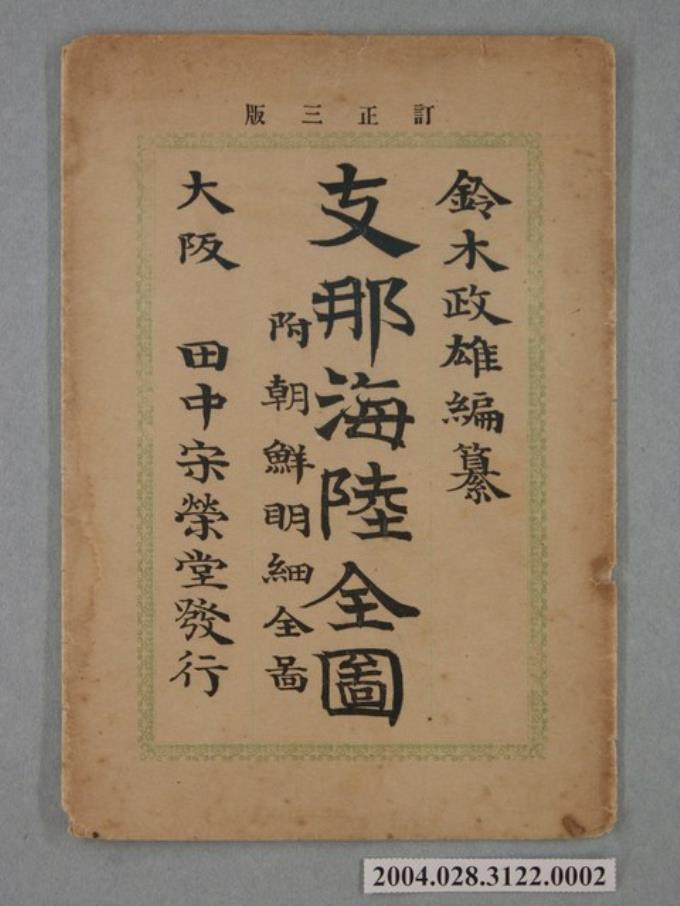 訂正三版
鈴木政雄編纂
支那海陸全圖
附朝鮮明細全啚
大阪 田中宋榮堂發行
2004.028.3122.0002